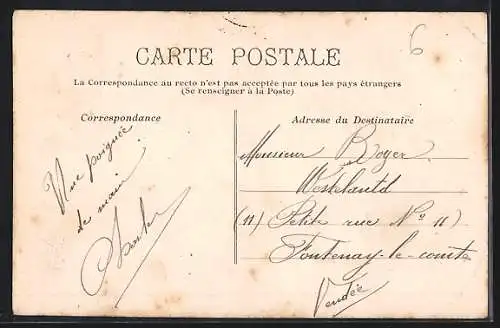 6
CARTE POSTALE
La Correspondance au recto n'est pas acceptée par tous les pays étrangers
(Se renseigner à la Poste)
Correspondance
Une poignée
de main
Adresse du Destinataire
Monsieur Royer
(11) Petite rue Nº 11)
Fontenay-le-comte
Vendée